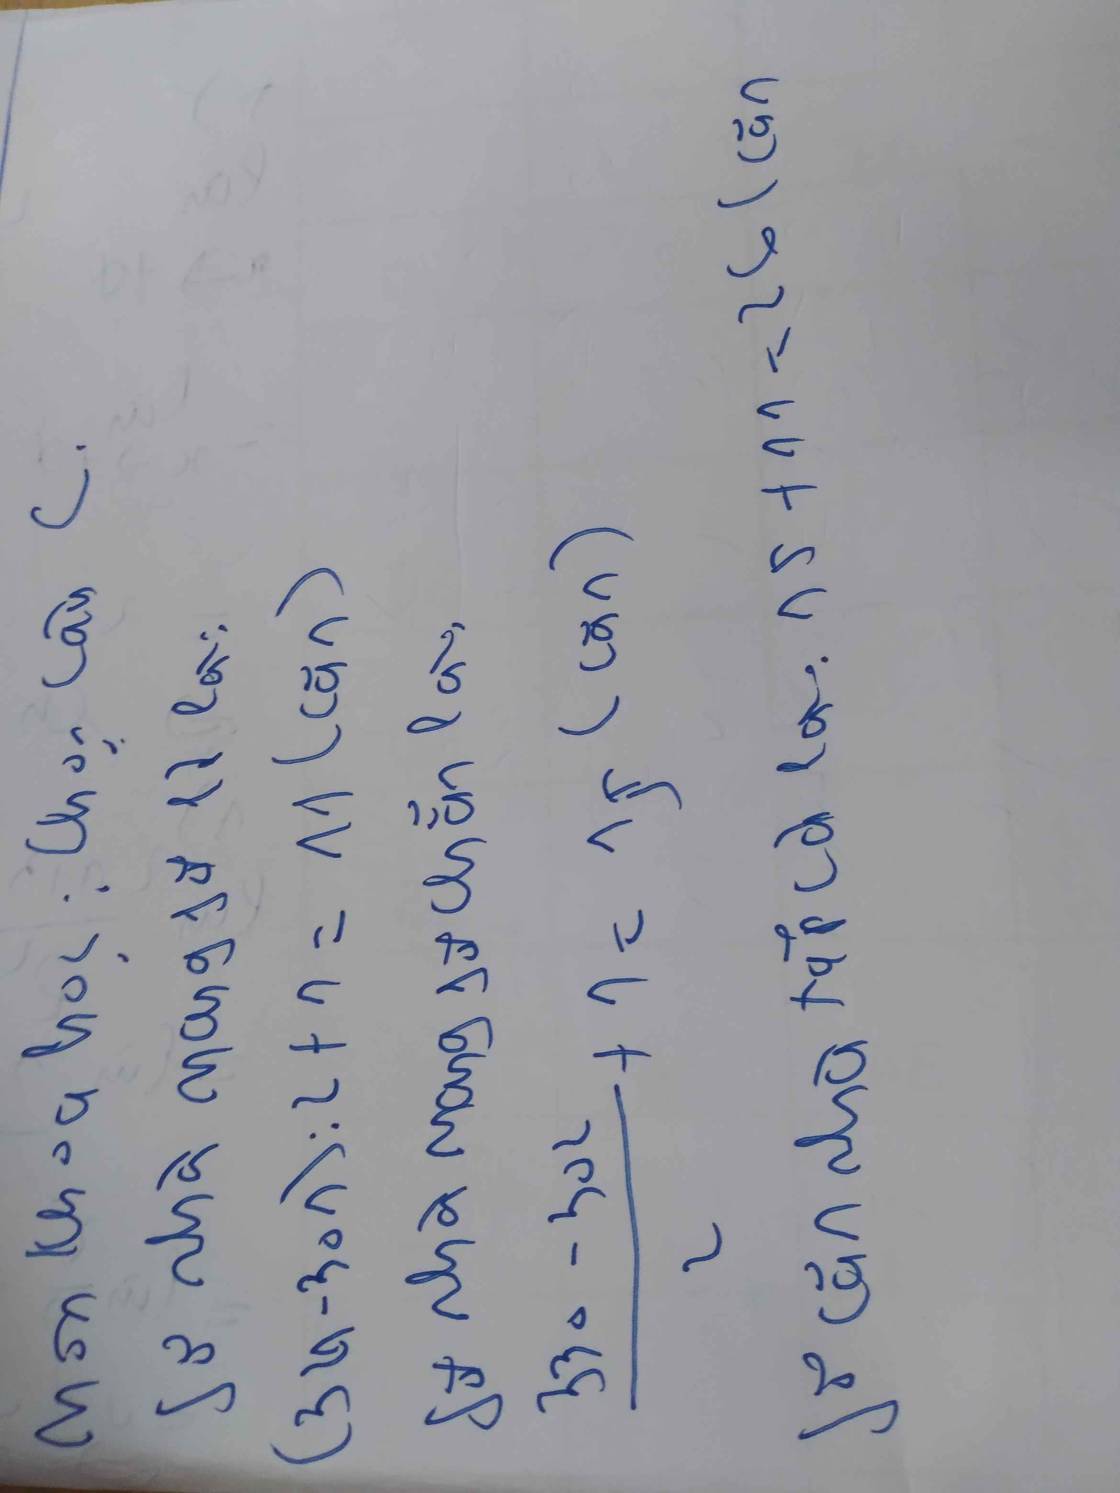 Môn khoa học: Chọn câu C.
Số nhà mang số lẻ là:
(321-301):2+1 = 11 (căn)
Số nhà mang số chẵn là:
330-302
2
+ 1 = 15 (căn)
Số căn nhà tất cả là: 15+11=26 (căn